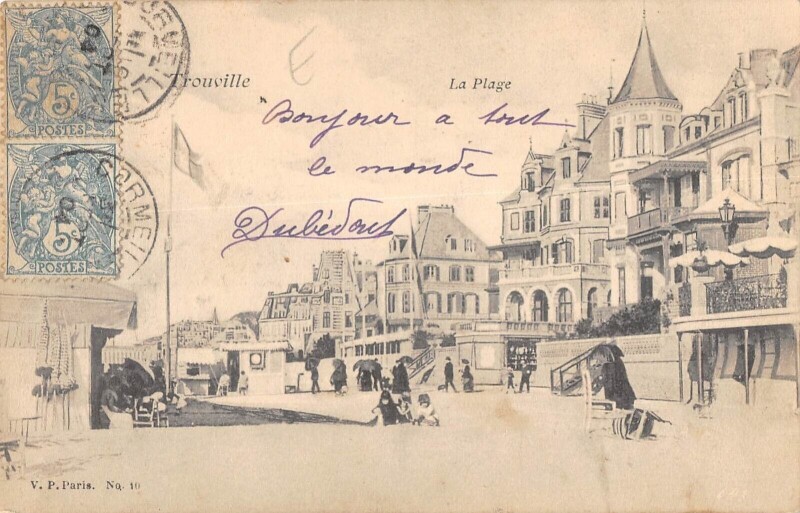 5c
POSTES
5c
POSTES
CORMEIL
04
Trouville
La Plage
E
Bonjour a tout
le monde
Dubédout
V. P. Paris. No. 10